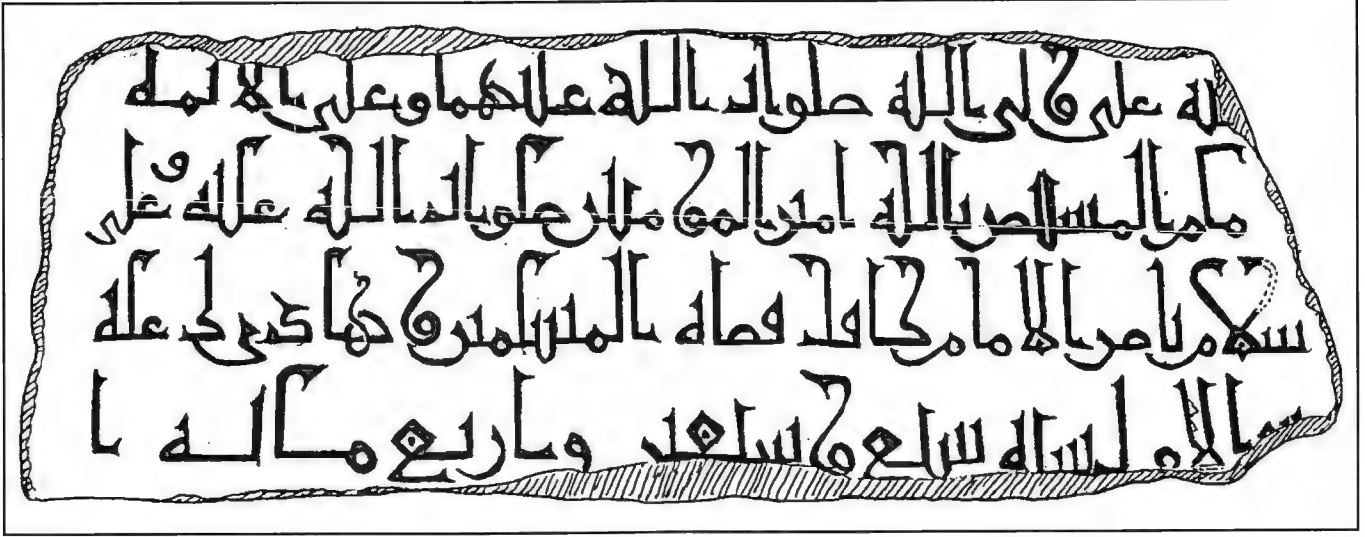 لله علي ولي الله صلوات الله عليهما وعلى الائمه
مام المستنصر بالله امير المومنين صلوات الله عليه وعلى
سلام ناصر الامام كافل قضاه المسلمين
الاول سنه سبع وسبعين واربع مائه ا